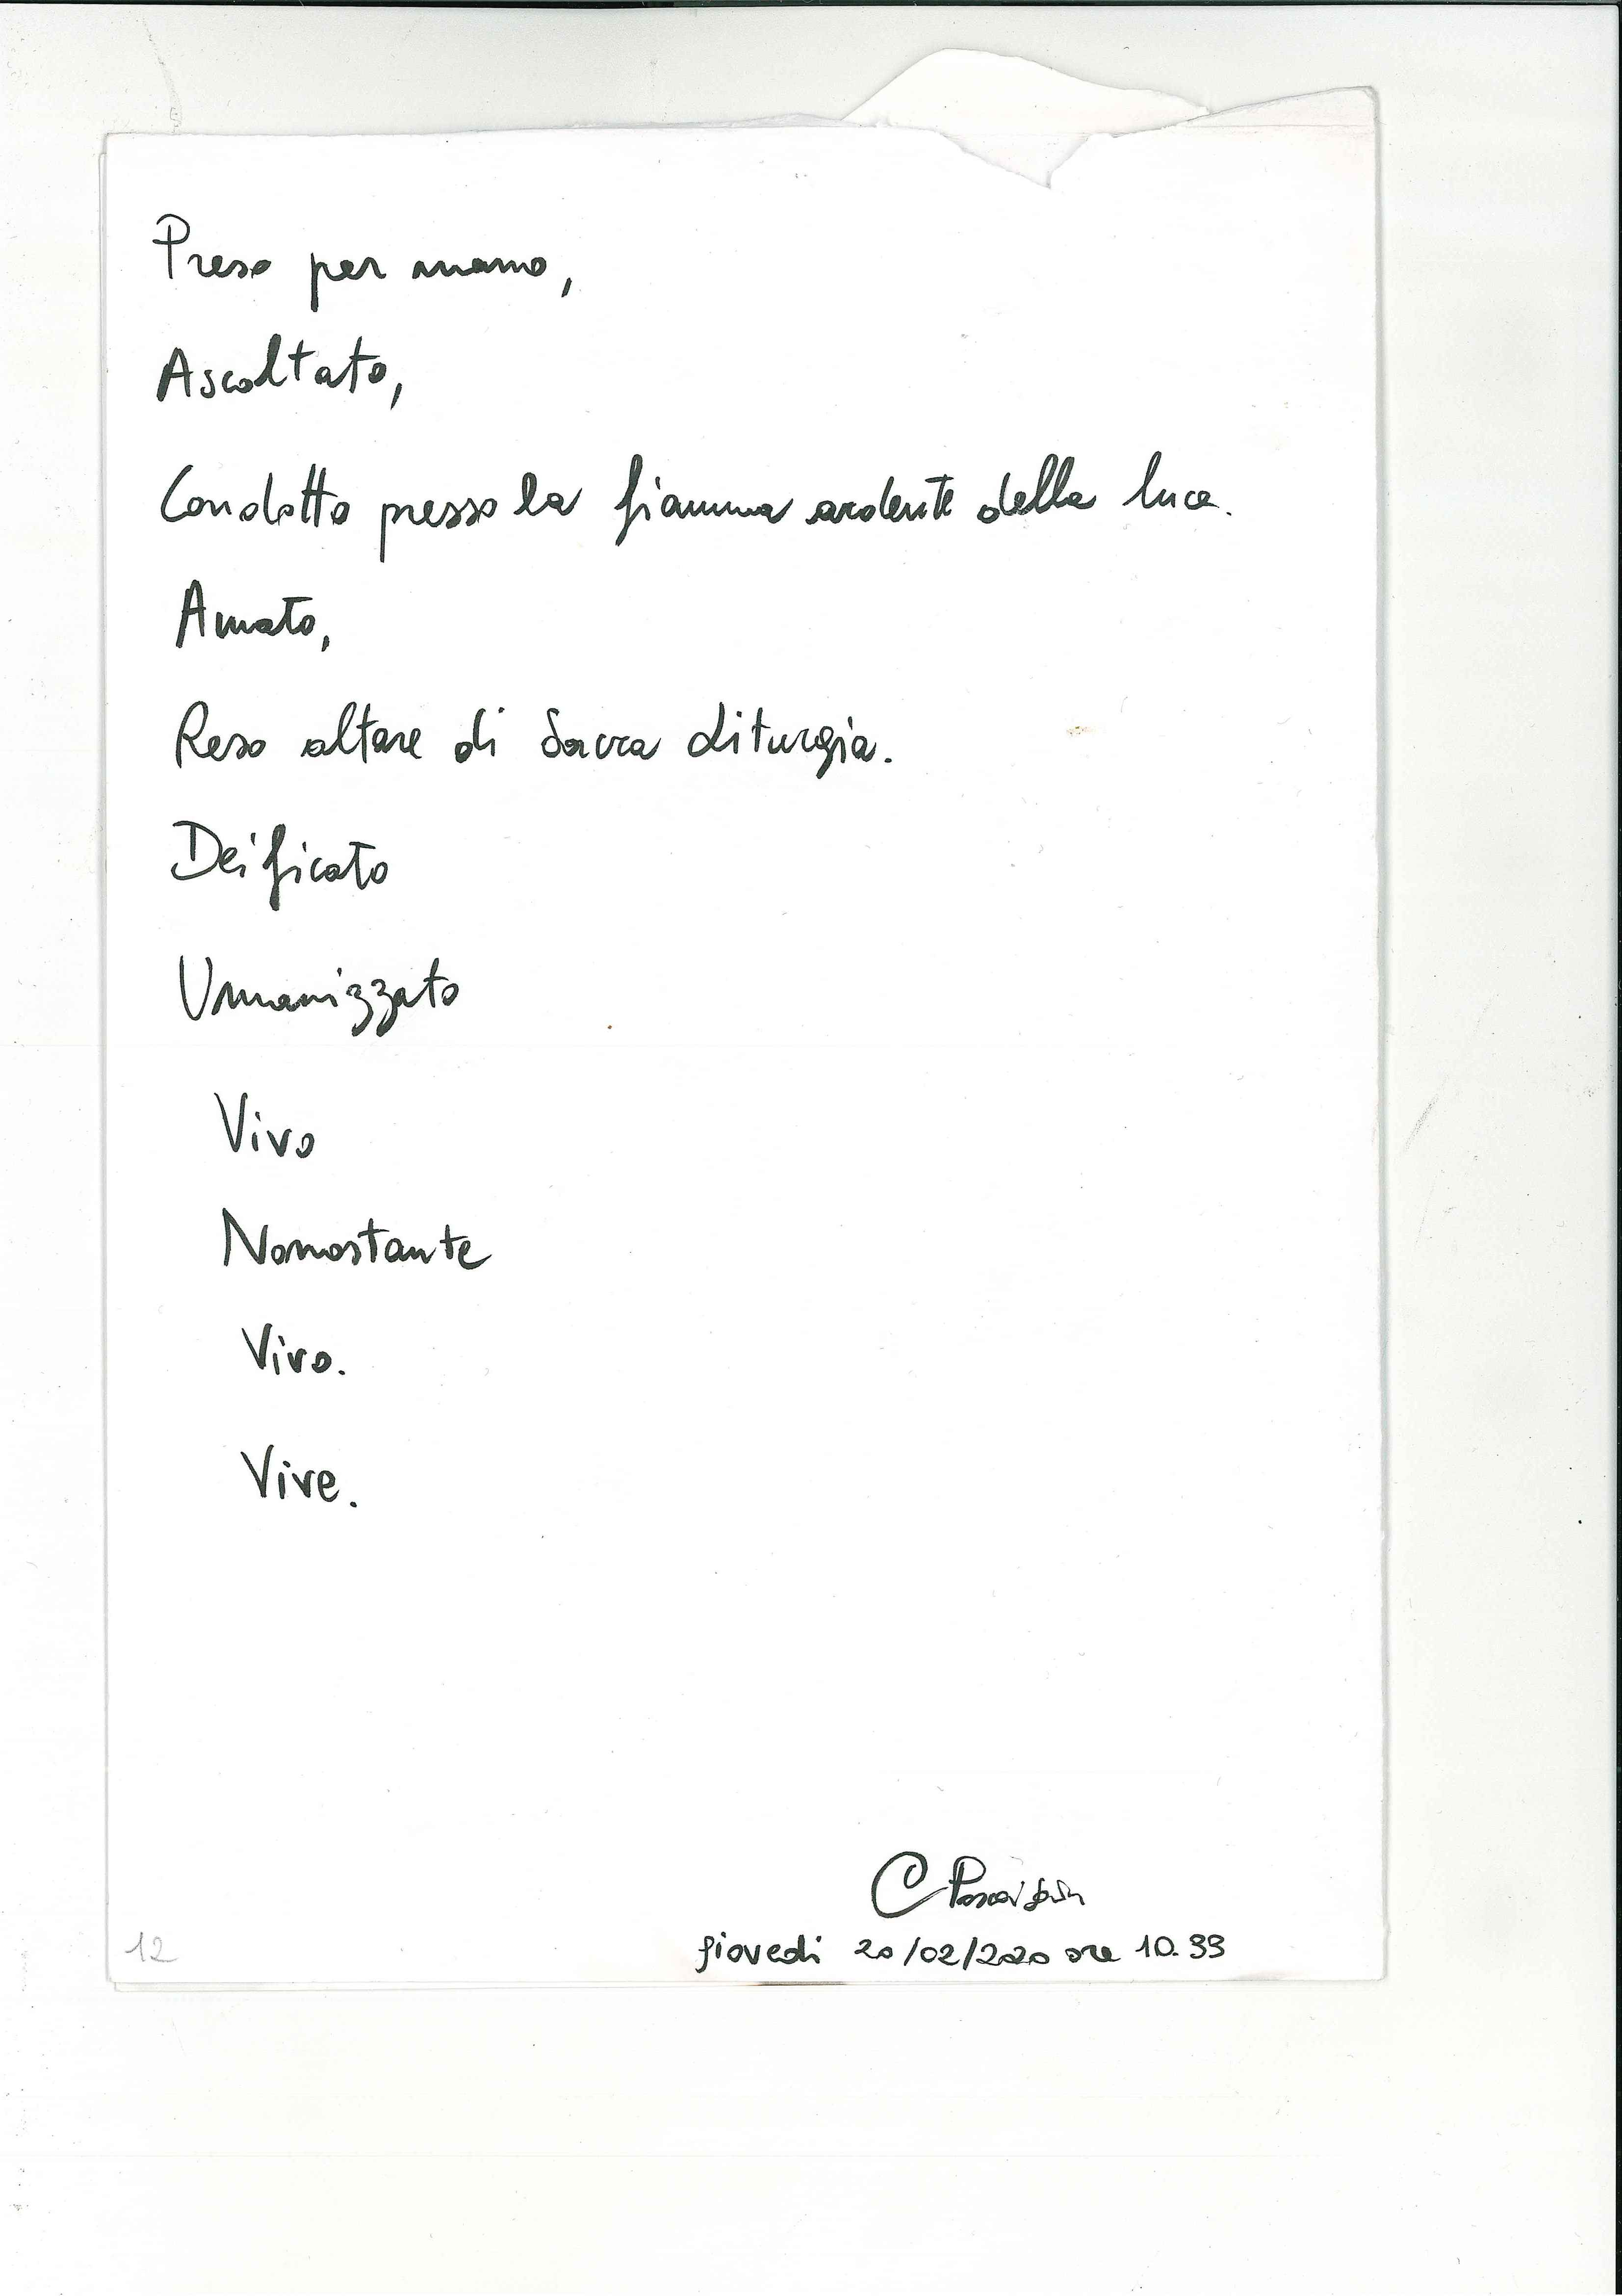 Preso per mano,
Ascoltato,
Condotto presso la fiamma ardente della luce.
Amato,
Reso altare di Sacra Liturgia.
Deificato
Umanizzato
Vivo
Nonostante
Vivo.
Vive.
C
giovedì 20/02/2020 ore 10.33
12